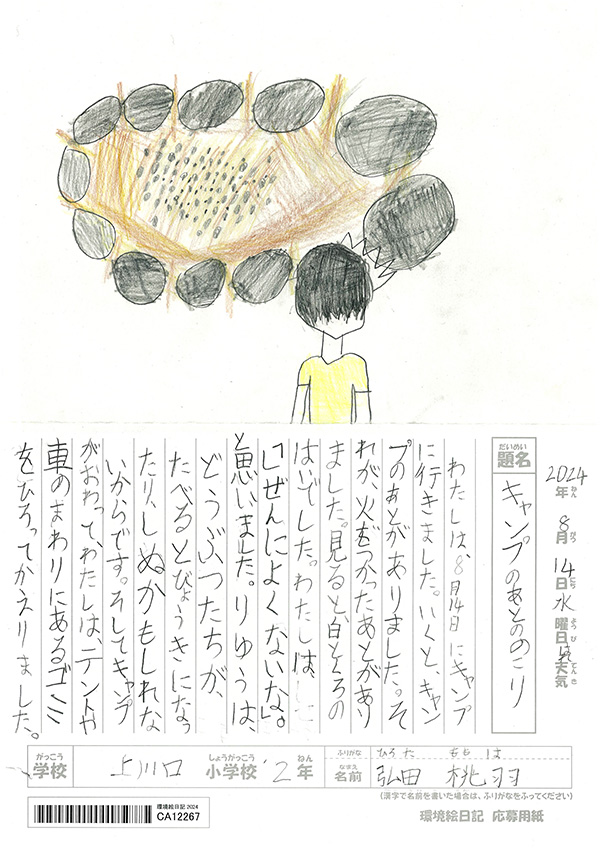 2024年ねん 8月がつ 14日にち 水曜日ようび 天気てんき
だいめい
題名
キャンプのあとののこり
わたしは、8月14日にキャンプ
に行きました。いくと、キャン
プのあとがありました。そ
れが、火をつかったあとがあり
ました。見ると、白とくろの
はいでした。わたしは、
「しぜんによくないな。」
と思いました。りゆうは、
どうぶつたちが、
たべるとびょうきになっ
たり、しぬかもしれな
いからです。そしてキャンプ
がおわって、わたしは、テントや
車のまわりにあるゴミ
をひろってかえりました。
がっこう
学校
上川口
しょうがっこう
小学校
2年ねん
ふりがな
ひろた ももは
なまえ
名前
弘田 桃羽
(漢字で名前を書いた場合は、ふりがなをふってください)
環境絵日記 2024
CA12267
環境絵日記 応募用紙